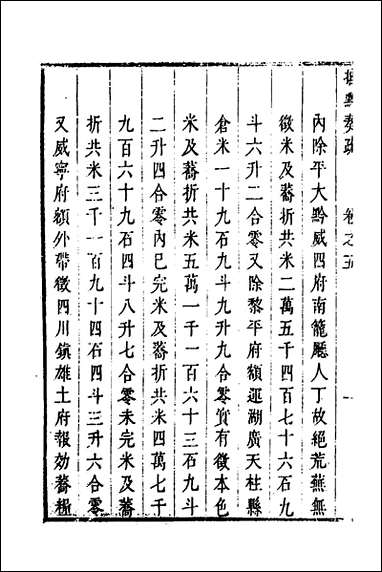 撫黔奏疏 卷之五
內除平大黔威四府南籠廳人丁故絕荒蕪無
徵米及蕎折共米二萬五千四百七十六石九
斗六升二合零又除黎平府額運湖廣天柱縣
倉米一十九石九斗九升九合零實有徵本色
米及蕎折共米五萬一千一百六十三石九斗
二升四合零內已完米及蕎折共米四萬七千
九百六十九石四斗八升七合零未完米及蕎
折共米三千一百九十四石四斗三升六合零
又威寧府額外帶徵四川鎮雄土府報効蕎糧